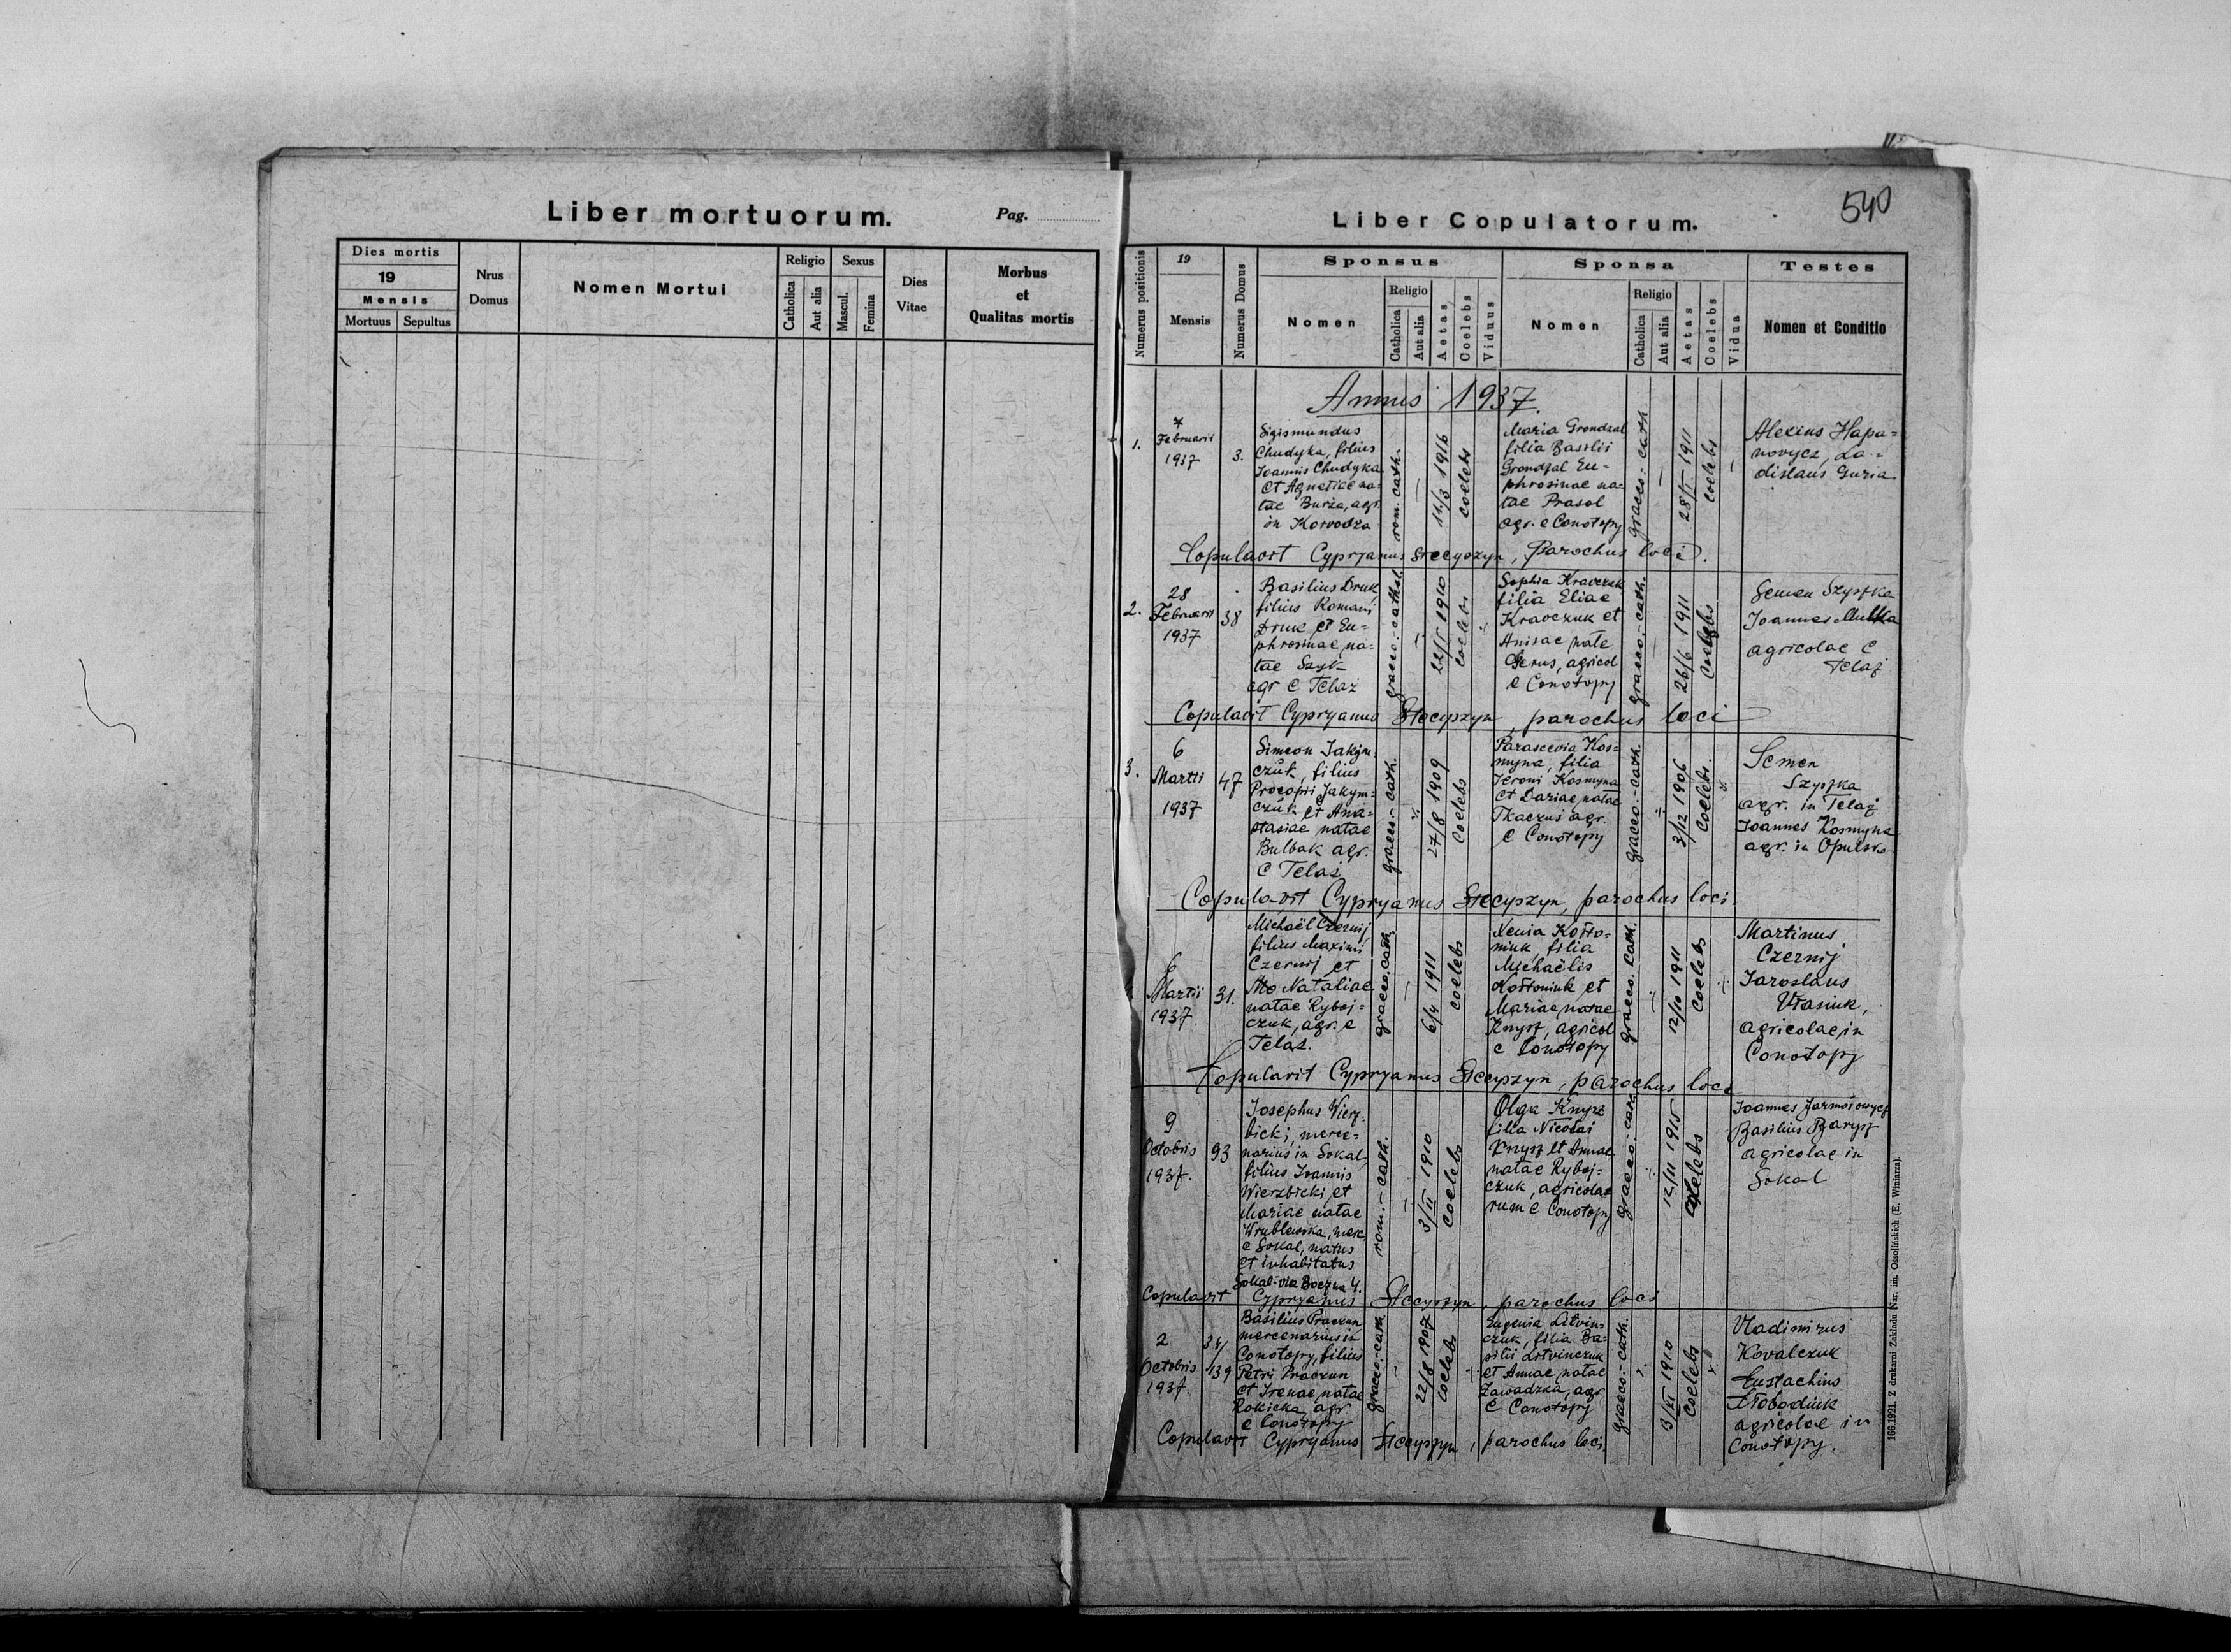 Liber mortuorum.
Pag.
Dies mortis
19
Mensis
Mortuus
Sepultus
Nrus
Domus
Nomen Mortui
Religio
Catholica
Aut alia
Sexus
Mascul.
Femina
Dies
Vitae
Morbus
et
Qualitas mortis
540
Liber Copulatorum.
Numerus positionis
19
Mensis
Numerus Domus
Sponsus
Nomen
Religio
Catholica
Aut alia
Aetas
Coelebs
Viduus
Sponsa
Nomen
Religio
Catholica
Aut alia
Aetas
Coelebs
Vidua
Testes
Nomen et Conditio
Annus 1937.
1.
7
Februarii
1937
3.
Sigismundus
Chudyka, filius
Joannis Chudyka
et Agnetiae na-
tae Burza, agr.
in Korvodza
rom. cath.
11/3 1916
coelebs
Maria Grondzal
filia Basilii
Grondzal Eu-
phrosinae na-
tae Prasol
agr. e Conotopy
graeco-cath
28/I 1911
coelebs
Alexius Hapa-
novycz, La-
dislaus Guzia
Copulavit Cypryanus Stecyszyn, Parochus loci.
2.
28
Februarii
1937
38
Basilius Druk
filius Romani
Druk et Eu-
phrosinae na-
tae Szyk
agr e Telaż
graeco-cathol.
22/I 1910
coelebs
Sophia Kravczuk
filia Eliae
Kravczuk et
Anisae nate
Genus, agricol
e Conotopy
graeco-cath.
26/6 1911
Coelebs
Semen Szyszka
Joannes
agricolae e
Telaż
Copulavit Cypryanus Stecyszyn, parochus loci
3.
6
Martii
1937
47
Simeon Jakym-
czuk, filius
Procopii Jakym-
czuk et Ana-
stasiae natae
Bulbak agr.
e Telaż
graeco-cath.
27/8 1909
Coelebs
Parascevia Kos-
myna, filia
Jeroni Kosmyna
et Dariae natae
Tkaczus agr.
e Conotopy
graeco-cath.
3/12 1906
Coelebs.
Semen
Szyszka
agr. in Telaż
Joannes Kosmyna
agr. in Opulsko
Copulavit Cypryanus Stecyszyn, parochus loci.
6
Martii
1937
31.
Michaël Czernij
filius Maximi
Czernij et
Nataliae
natae Ryboj-
czuk, agr. e
Telaż.
graeco.cath.
6/4 1911
coelebs
Xenia Kołto-
niuk, filia
Michaëlis
Kołtoniuk et
Mariae natae
Knysz, agricol
e Conotopy
graeco. cath.
12/10 1911
Coelebs
Martinus
Czernij
Jaroslaus
Vłasiuk,
agricolae in
Conotopy
Copulavit Cypryanus Stecyszyn, parochus loci
9
Octobris
1937.
93
Josephus Wierz-
bicki, merce-
narius in Sokal,
filius Joannis
Wierzbicki et
Mariae natae
Wrublewska, merc.
e Sokal, natus
et inhabitatus
Sokal-via Boczna 4.
rom.-cath.
3/II 1910
Coelebs
Olga Knysz
filia Nicolai
Knysz et Annae
natae Ryboj-
czuk, agricola-
rum e Conotopy
graeco-cath
12/11 1915
coelebs
Joannes Jarmołowycz
Basilius Barysz
agricolae in
Sokal
Copulavit Cypryanus Stecyszyn, parochus loci
2
Octobris
1937.
34/
139
Basilius Praczun
mercenarius in
Conotopy, filius
Petri Praczun
et Irenae natae
Rokicka agr
e Conotopy
graeco-cath
22/8 1907
Coelebs
Eugenia Litvin-
czuk, filia Ba-
silii Litvinczuk
et Annae natae
Zawadzka, agr
e Conotopy
graeco-cath.
3/XI 1910
Coelebs
Vladimirus
Kovalczuk
Eustachius
Słobodiuk
agricolae in
Conotopy.
Copulavit Cypryanus Stecyszyn, parochus loci.
166.1921. Z drukarni Zakładu Nar. im. Ossolińskich (E. Winiarza)